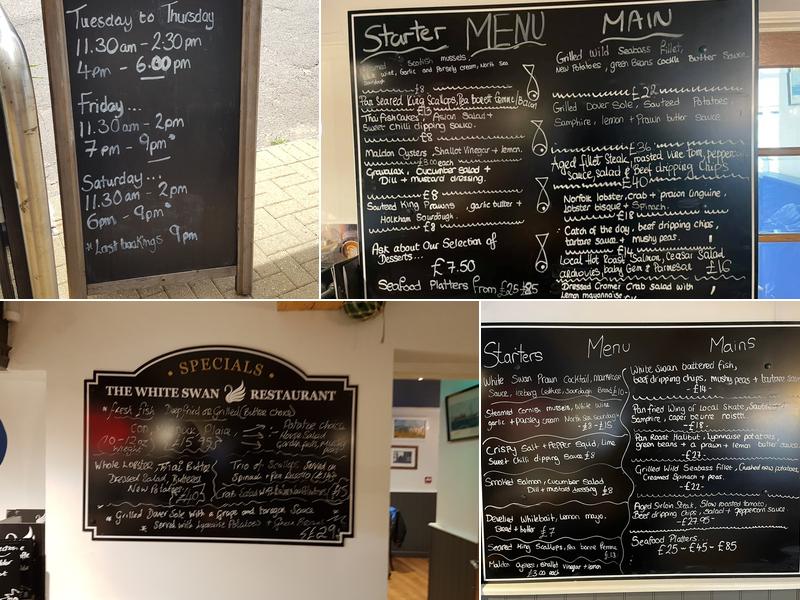 Tuesday to Thursday
11.30am - 2:30pm
4pm - 6.00pm
Friday...
11.30am - 2pm
7pm - 9pm*
Saturday...
11.30am - 2pm
6pm - 9pm*
* Last bookings 9pm
Starter MENU MAIN
Scotish mussels,
wine, Garlic and Parsely cream, North Sea
£8
Pan Seared King Scallops, Pea puree + femme / Bacon
£13
Thai Fish Cakes, Asian Salad +
Sweet Chilli dipping sauce.
£8
Maldon Oysters, Shallot Vinegar + lemon.
£3.00 each
Gravalax, cucumber Salad +
Dill + mustard dressing.
£8
Sauteed King Prawns, garlic butter +
Holkham Sourdough.
£8
Ask about Our Selection of
Desserts...
£7.50
Seafood Platters from £25-85
Grilled Wild Seabass Fillet,
New Potatoes, green Beans cockle Butter Sauce
£22
Grilled Dover Sole, Sauteed Potatoes,
Samphire, lemon + Prawn butter sauce
£36
Aged fillet Steak, roasted Vine Tom, peppercorn
sauce, salad + Beef dripping Chips
£40
Norfolk lobster, Crab + prawn linguine,
lobster bisque + Spinach.
£18
Catch of the day, beef dripping chips,
tartare sauce + mushy peas.
£14
Local Hot Roast Salmon, Ceasar Salad
anchovies, baby Gem & Parmesal £16
Dressed Cromer Crab Salad with
Lemon mayonnaise
SPECIALS
THE WHITE SWAN RESTAURANT
* fresh fish Deepfried or Grilled (Butter choice)
10-12oz £15.95
weight
Potatoe choice
House Salad
Garden peas, Mushy peas
Whole Lobster, Thai Butter
Dressed Salad, Buttered
New Potatoes
Trio of Scallops, Served on
* Grilled Dover Sole with a Grape and tarragon Sauce
Served with Lyonaise Potatoes + Green
£29
Starters Menu Mains
White Swan Prawn Cocktail, mariterose
Sauce, Iceberg Lettuce, Sourdough Bread £10-
Steamed Cornish mussels, White Wine
garlic + Parsley cream North Sea Sourdough
-£8 - £15
Crispy Salt + Pepper Squid, Lime
Sweet Chilli dipping Sauce £8
Smoked Salmon, Cucumber Salad
Dill + mustard dressing £8
Devilled Whitebait, Lemon mayo,
Bread + butter £7
Seared King Scallops, Pea puree Femme
£13
Maldon Oysters, Shallot Vinegar + lemon
£3.00 each
White Swan battered fish,
beef dripping chips, mushy peas + tartare sauce
-£14-
Pan fried Wing of Local Skate,
Samphire, caper beurre noisette
-£18-
Pan Roast Halibut, Lyonnaise potatoes,
green beans + a prawn + lemon butter sauce
-£27-
Grilled Wild Seabass Fillet, Crushed new potatoes
Creamed Spinach + peas.
-£22-
Aged Sirloin Steak, Slow roasted tomato,
Beef dripping chips, salad + peppercorn sauce.
-£27.95-
Seafood Platters...
£25 - £45 - £85